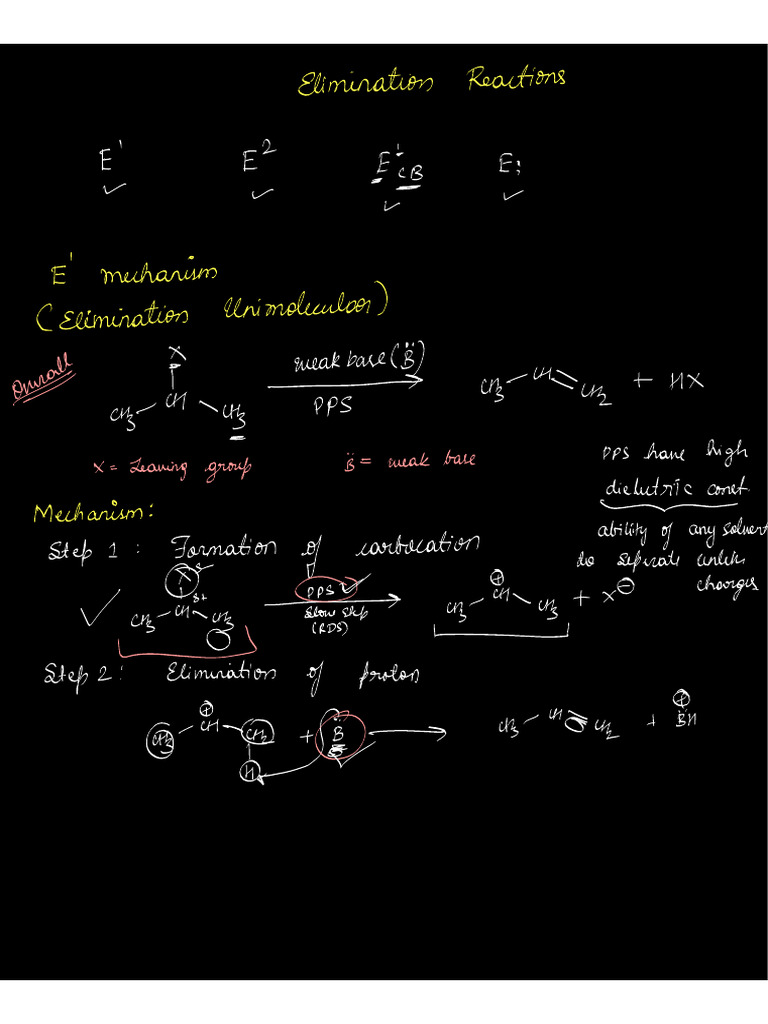 Elimination Reactions
E¹ E² E¹cB Ei
E¹ mechanism
(Elimination Unimolecular)
Overall
X
CH3 CH CH3
weak base (B̈)
PPS
CH3 CH CH2 + HX
X = Leaving group B̈ = weak base
PPS have high
dielectric const.
ability of any solvent
to seperate unlike
charges
Mechanism:
Step 1 : Formation of carbocation
X δ-
CH3 CH δ+ CH3
PPS
Slow step
(RDS)
CH3 CH⊕ CH3 + X⊖
Step 2 : Elimination of proton
CH3 CH⊕ CH2 + B̈
H
CH3 CH CH2 + B̈H⊕